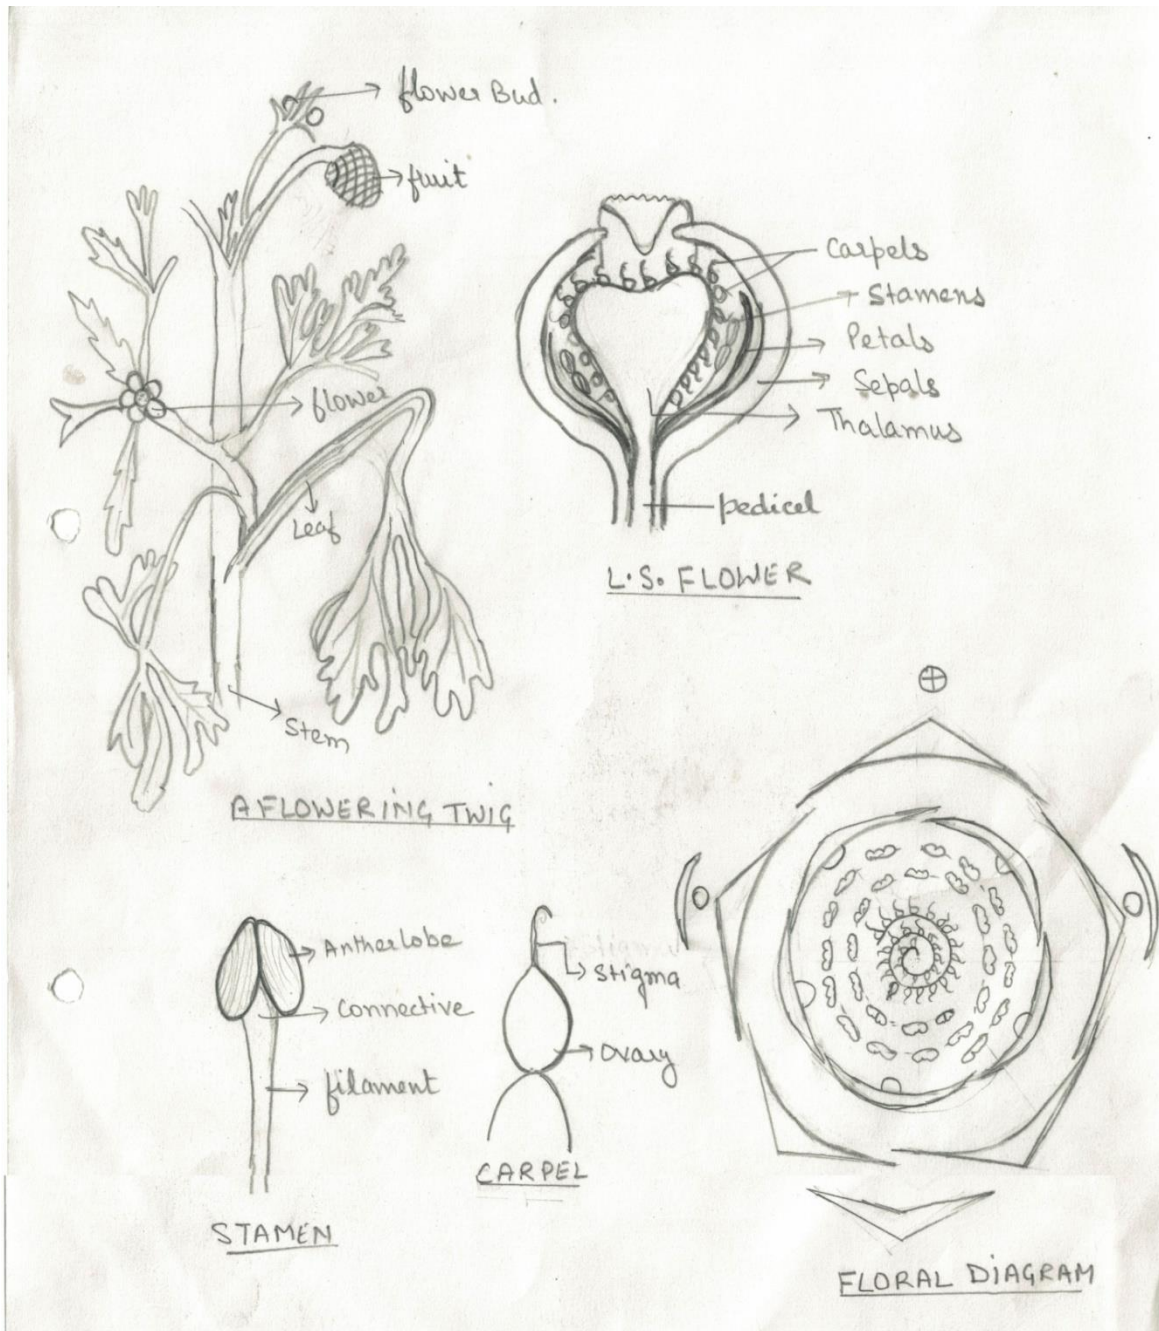 flower Bud.
fruit
flower
Leaf
Stem
A FLOWERING TWIG
Carpels
Stamens
Petals
Sepals
Thalamus
pedicel
L.S. FLOWER
Antherlobe
Connective
filament
STAMEN
Stigma
Ovary
CARPEL
FLORAL DIAGRAM